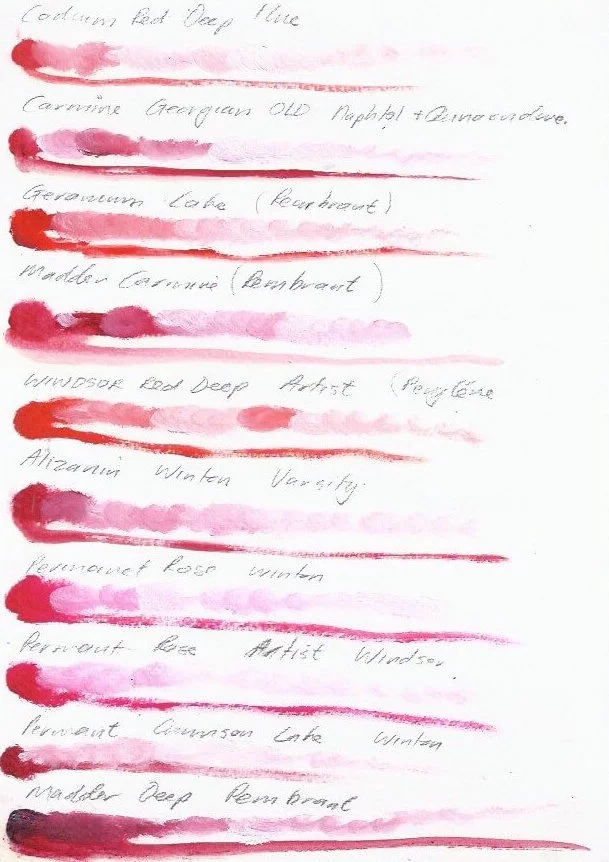 Cadium Red Deep Hue
Carmine Georgian OLD Naphtol + Quinacridone.
Geranium Lake (Rembrant)
Madder Carmine (Rembrant)
WINDSOR Red Deep Artist (Perylene
Alizanin Winton Varsity
Permanet Rose Winton
Permant Rose Artist Windsor
Permant Crimson Lake Winton
Madder Deep Rembrant